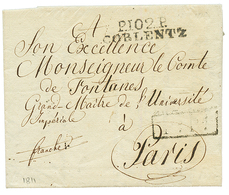 P.102.P.
COBLENTZ
A
Son Excellence
Monseigneur le Comte
de Fontanes
Grand-Maître de l'Université
Impériale
à
franche
Paris
1811